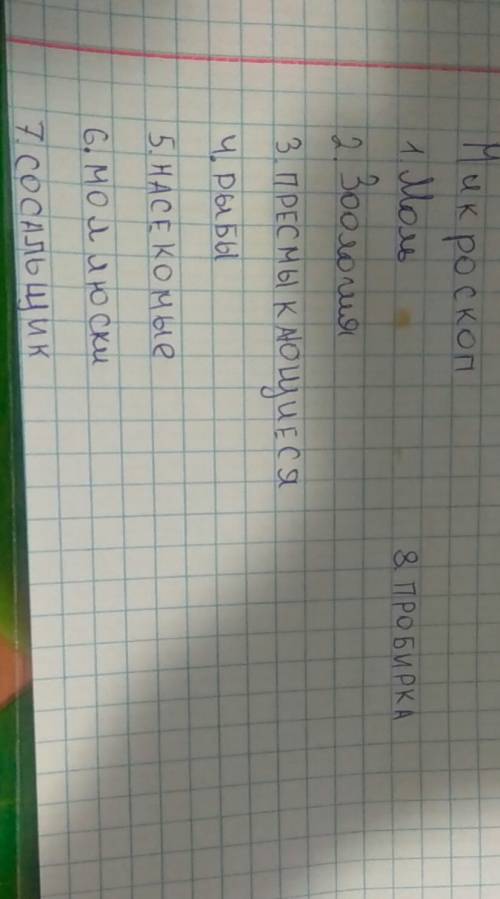 Микроскоп
1. Моль
2. Зоология
3. ПРЕСМЫКАЮЩИЕСЯ
4. РЫБЫ
5. НАСЕКОМЫЕ
6. МОЛЛЮСКИ
7. СОСАЛЬЩИК
8. ПРОБИРКА